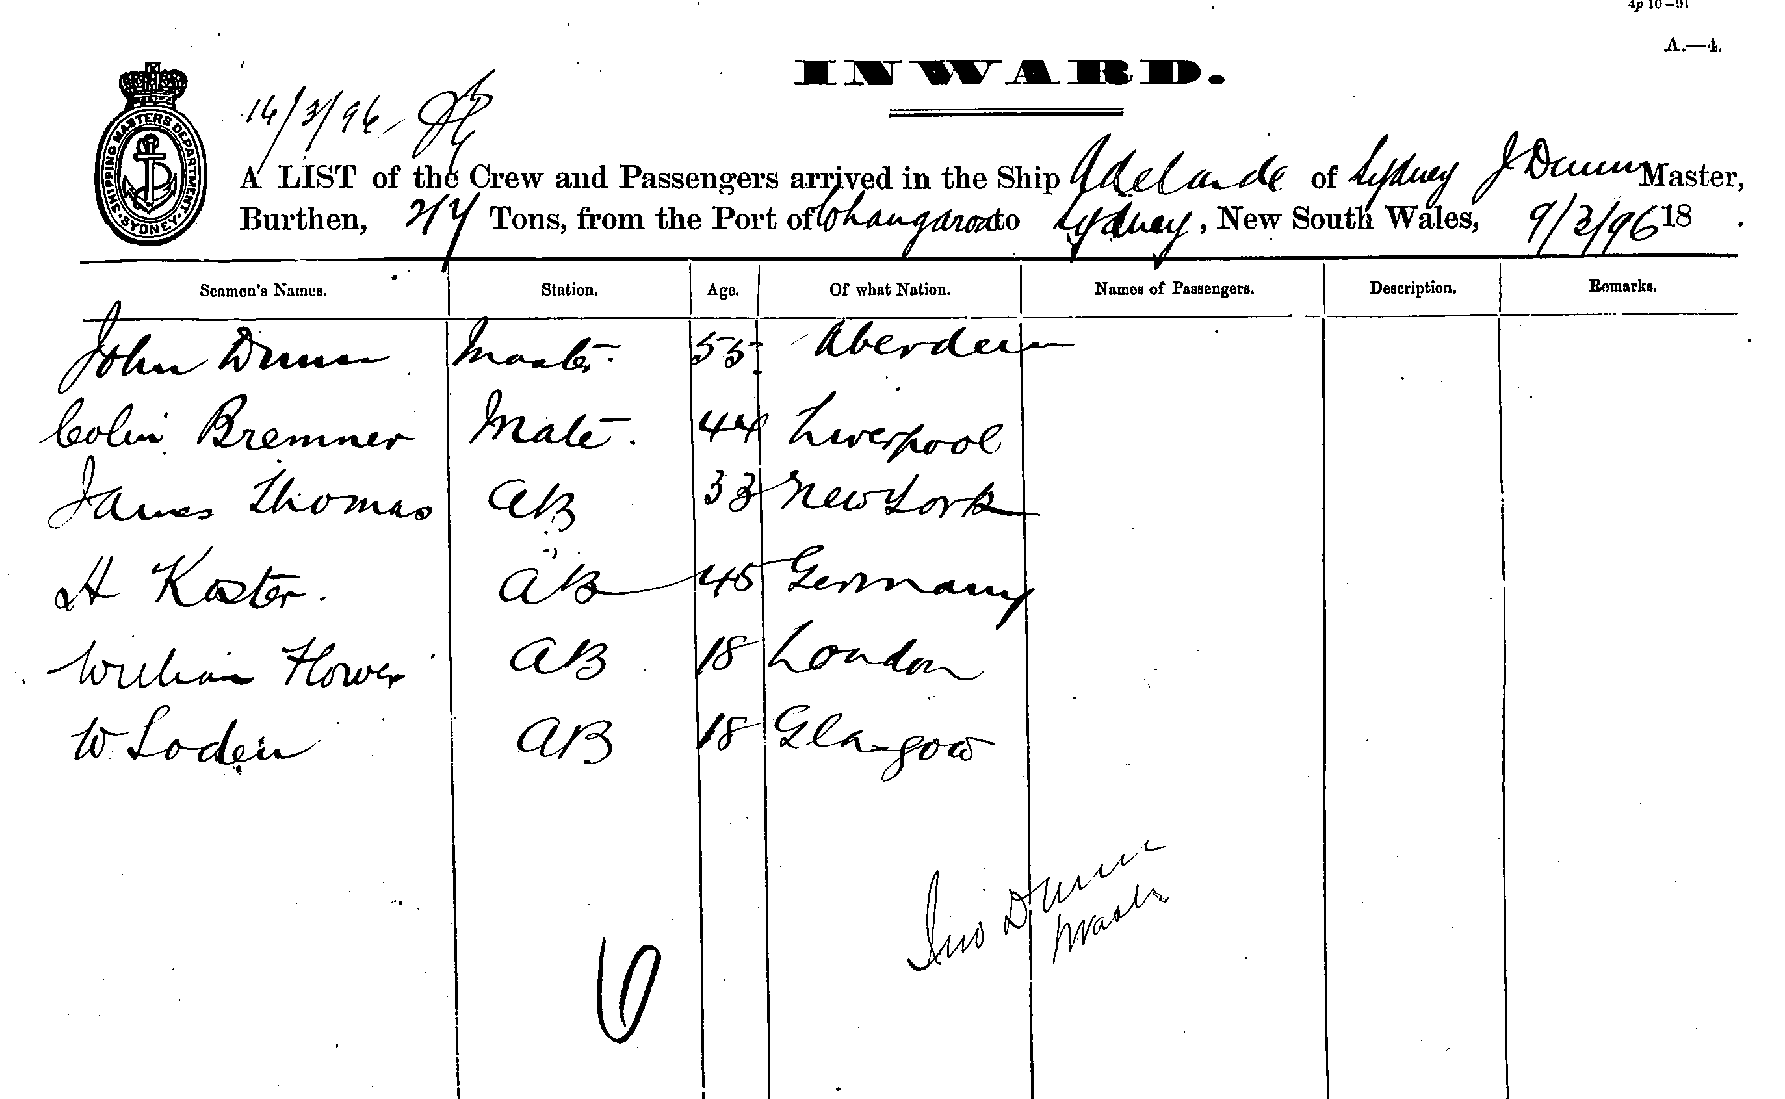 4p 10-91
A.—4.
INWARD.
16/3/96
SHIPPING MASTERS DEPARTMENT SYDNEY
A LIST of the Crew and Passengers arrived in the Ship Adelaide of Sydney J Dunn Master,
Burthen, Tons, from the Port of Whangaroa to Sydney, New South Wales, 9/3/96 18
Seamen's Names. Station. Age. Of what Nation. Names of Passengers. Description. Remarks.
John Dunn Master. 55 Aberdeen
Colin Bremner Mate. 44 Liverpool
James Thomas AB 33 New York
H Koster. AB 45 Germany
William Flower AB 18 London
W Loden AB 18 Glasgow
Jno Dunn
Master
6